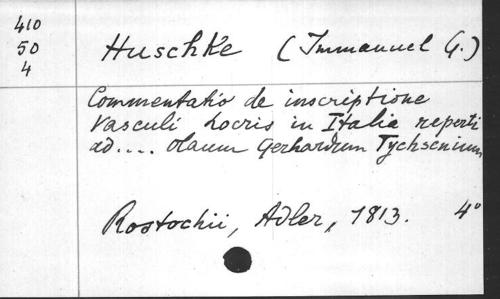 410
50
4
Huschke (Immanuel G.)
Commentatio de inscriptione
Vasculi Locris in Italia reperti
ad.... Olaum Gerhardum Tychsenium
Rostochii, Adler, 1813. 4°